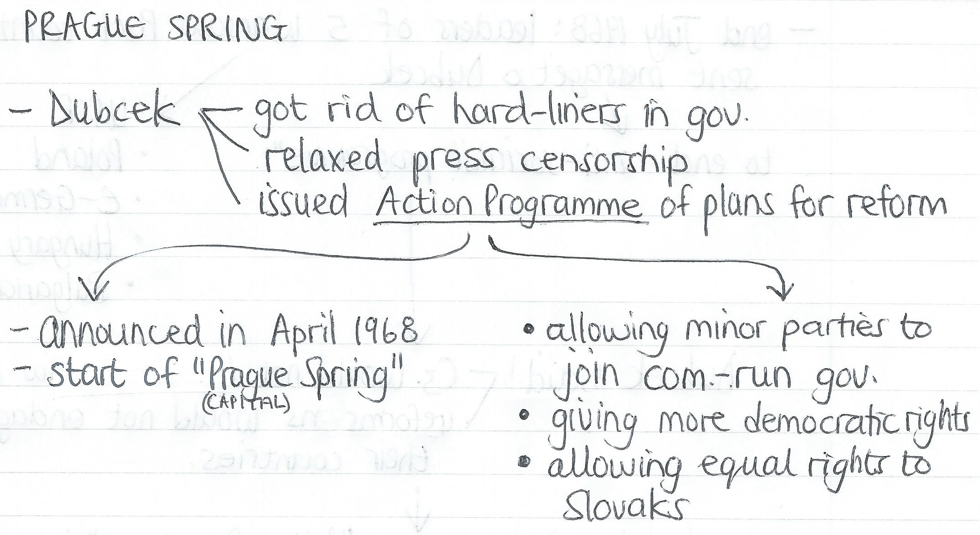 PRAGUE SPRING
- Dubcek
got rid of hard-liners in gov.
relaxed press censorship
issued Action Programme of plans for reform
- announced in April 1968
- start of "Prague Spring"
(CAPITAL)
• allowing minor parties to
join com.-run gov.
• giving more democratic rights
• allowing equal rights to
Slovaks